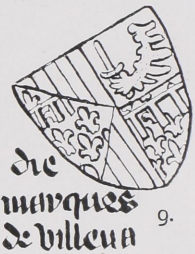 die
marques
de villena
9.